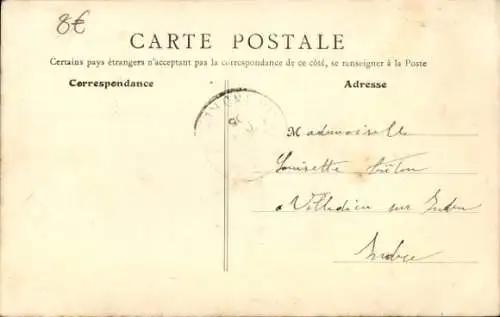 8€
CARTE POSTALE
Certains pays étrangers n'acceptant pas la correspondance de ce côté, se renseigner à la Poste
Correspondance
Adresse
Mademoiselle
Louisette
a Villedieu sur Indre
Indre